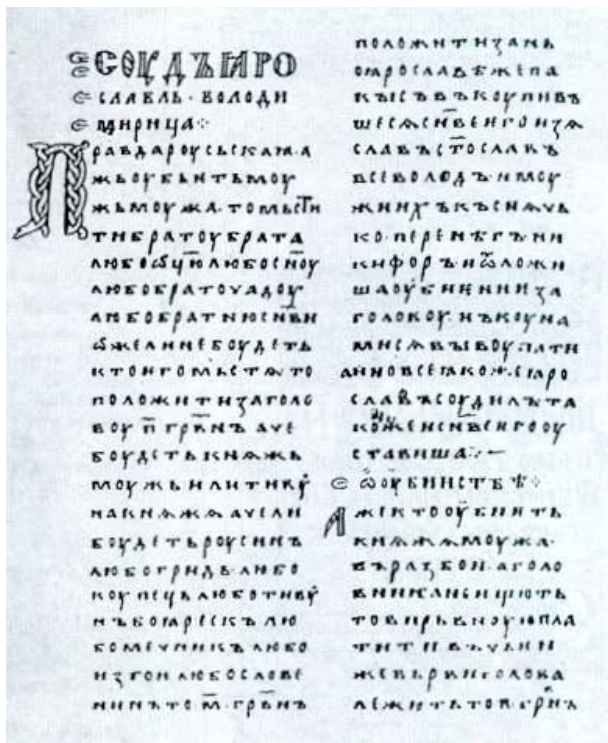 СОУДЪ ІАРО
СЛАВЛЬ · ВОЛОДИ
МИРИЦА⁘
Правда роусьскаıа · а
жь оубьıть моу
жь моужа · то мьстити
ти братоу брата
любо ѿцю любо сн҃оу
любо братоучадоу
любо братню сн҃ви
ѡже ли не боудеть
кто ıего мьстѧ то
положити за голо
воу п҃ грв҃нъ аче
боудеть кнѧжь
моужь или тивоу
на кнѧжа аче ли
боудеть роусинъ
любо гридь · любо
коупець любо тивоу
нъ боıарескъ лю
бо мечникъ любо
изгои любо слове
нинъ то · м҃ · грв҃нъ
положити за нь
ѡ ıарославѣ же па
кы съвъкоупивъ
шесѧ сн҃ве ıего изѧ
славъ ст҃ославъ
всеволодъ · и моу
жи ихъ къснѧчь
ко · перенѣгъ ни
кифоръ и ѿложи
ша оубиıениıе за
головоу · нъ коуна
ми сѧ выкоупати
а ино все ıакоже ıаро
славъ соудилъ та
коже и сн҃ве ıего оу
ставиша⁘
ѡ оубииствѣ⁘
Аже кто оубиıеть
кнѧжа моужа ·
въ разбои · а голо
вника не ищють
то вирьвноую пла
тити въ чьıеи
же вьрви голова
лежить то п҃ грв҃нъ